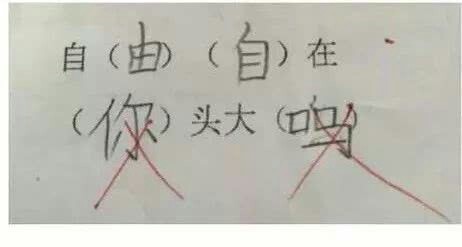 自（由）（自）在
（你）头大（吗）